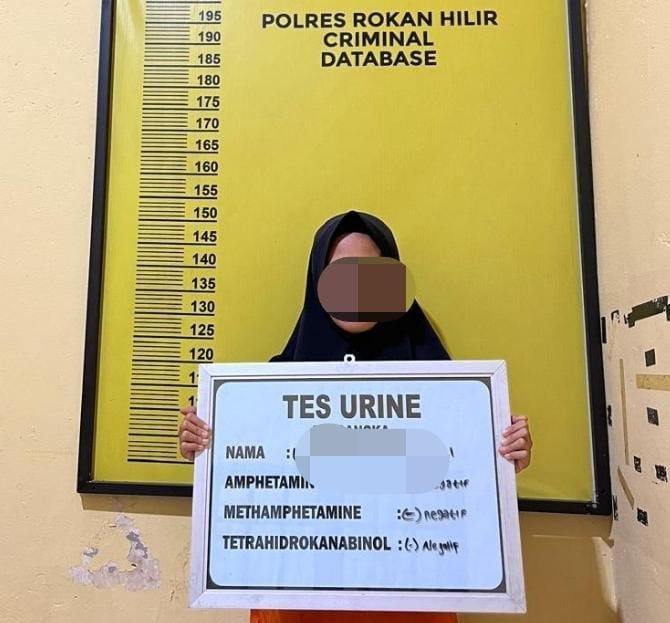 POLRES ROKAN HILIR
CRIMINAL
DATABASE
195
190
185
180
175
170
165
160
155
150
145
140
135
130
125
120
TES URINE
NAMA :(
AMPHETAMIN
METHAMPHETAMINE :(-) negatif
TETRAHIDROKANABINOL :(-) Negatif